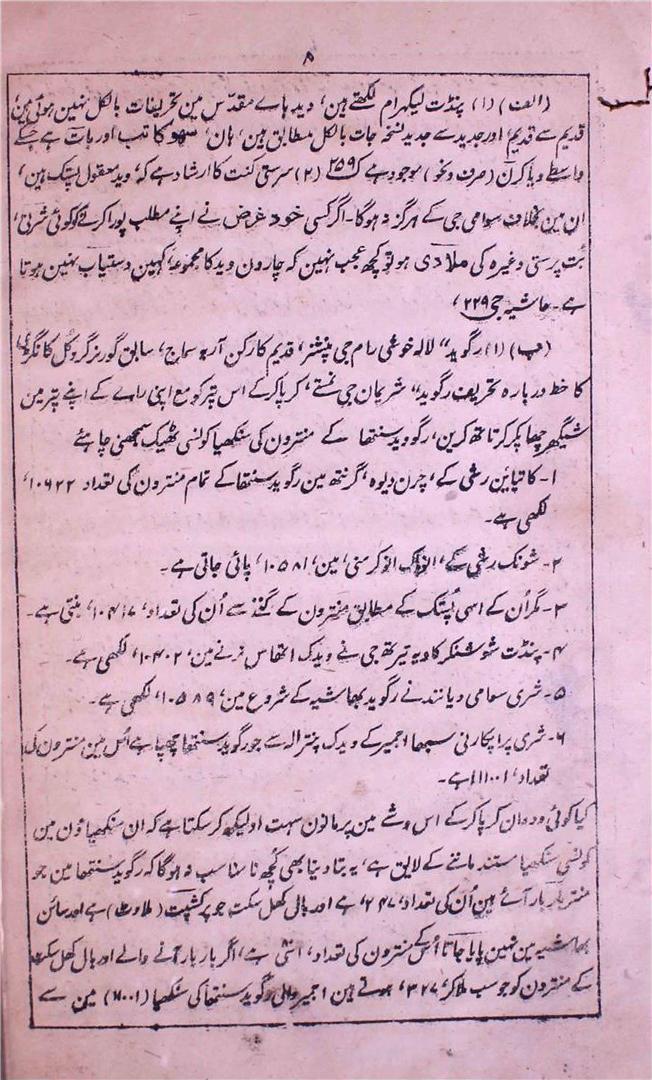 ۸
(الف) (۱) پنڈت لیکہرام لکھتے ہین، وید ہاے مقدّس مین تحریفات بالکل نہین ہوئی ہین،
قدیم سے قدیم، اور جدید سے جدید نسخہ جات بالکل مطابق ہین، ہان، سہو کاتب اور بات ہے جسکے
واسطے ویاکرن (صرف و نحو) موجود ہے ک ۲۵۹ (۲) سرسقی کنت کا ارشاد ہے کہ، وید معقول پستک ہین،
ان مین بخلاف سوامی جی کے ہرگز نہ ہوگا۔ اگر کسی خود غرض نے اپنے مطلب پورا کرنے کو کوئی شرتی،
بُت پرستی وغیرہ کی ملا دی ہو تو کچھ عجب نہین کہ چارون وید کا مجموعہ، کہین دستیاب نہین ہوتا
ہے۔ حاشیہ جی ۲۲۹،
(ب) (۱) رگوید" لالہ خوشی رام جی پنشنر، قدیم کارکن آریہ سماج، سابق گورنر گروکُل کانگڑی،
کا خط دربارہ تحریف رگوید" شریمان جی نمستے، کرپا کرکے اس پتر کو مع اپنی راے کے اپنے پتر مین
شیگھر چھاپکر کرتارتھ کرین، رگووید سنتھا کے منترون کی سنکھیا کونسی ٹھیک سمجھنی چاہئے
۱۔ کاتیاین رشی کے، چرن دیوہ، گرنتھ مین رگوید سنتھا کے تمام منترون کی تعداد ۱۰۶۲۲،
لکھی ہے۔
۲۔ شونک رشی کے، انوکرمنی، مین، ۱۰۵۸۱، پائی جاتی ہے۔
۳۔ مگر اُن کے اسی پُستک کے مطابق منترون کے گننے سے اُن کی تعداد، ۱۰۴۱۷، بنتی ہے۔
۴۔ پنڈت شوشنکر کاویہ تیرتھ جی نے ویدک اتھاس نرنے مین، ۱۰۴۰۲، لکھی ہے۔
۵۔ شری سوامی دیانند نے رگوید بھاشیہ کے شروع مین، ۱۰۵۸۹، لکھی ہے۔
۶۔ شری پراپکارنی سبھا اجمیر کے ویدک ینترالہ سے جو رگوید سنتھا چھپا ہے اُس مین منترون کی
تعداد، ۱۱۰۰۱ ہے۔
کیا کوئی ودوان کرپا کرکے اس وشے مین پرمانون سہت اولیکھ کر سکتا ہے کہ ان سنکھیاؤن مین
کونسی سنکھیا مستند ماننے کے لایق ہے، یہ بتا دینا بھی کچھ نامناسب نہ ہوگا کہ رگوید سنتھا مین جو
منتر بار بار آئے ہین اُن کی تعداد، ۲۴۷، ہے اور بالی کھل سکت جو پرکشپت (ملاوٹ) ہے اور سائن
بھاشیہ مین نہین پایا جاتا اُسکے منترون کی تعداد، اسّی ہے، اگر بار بار آنے والے اور بال کھل سکت
کے منترون کو جو سب ملا کر، ۳۲۷، ہوتے ہین اجمیر والی رگوید سنتھا کی سنکھیا (۱۱۰۰۱) مین سے